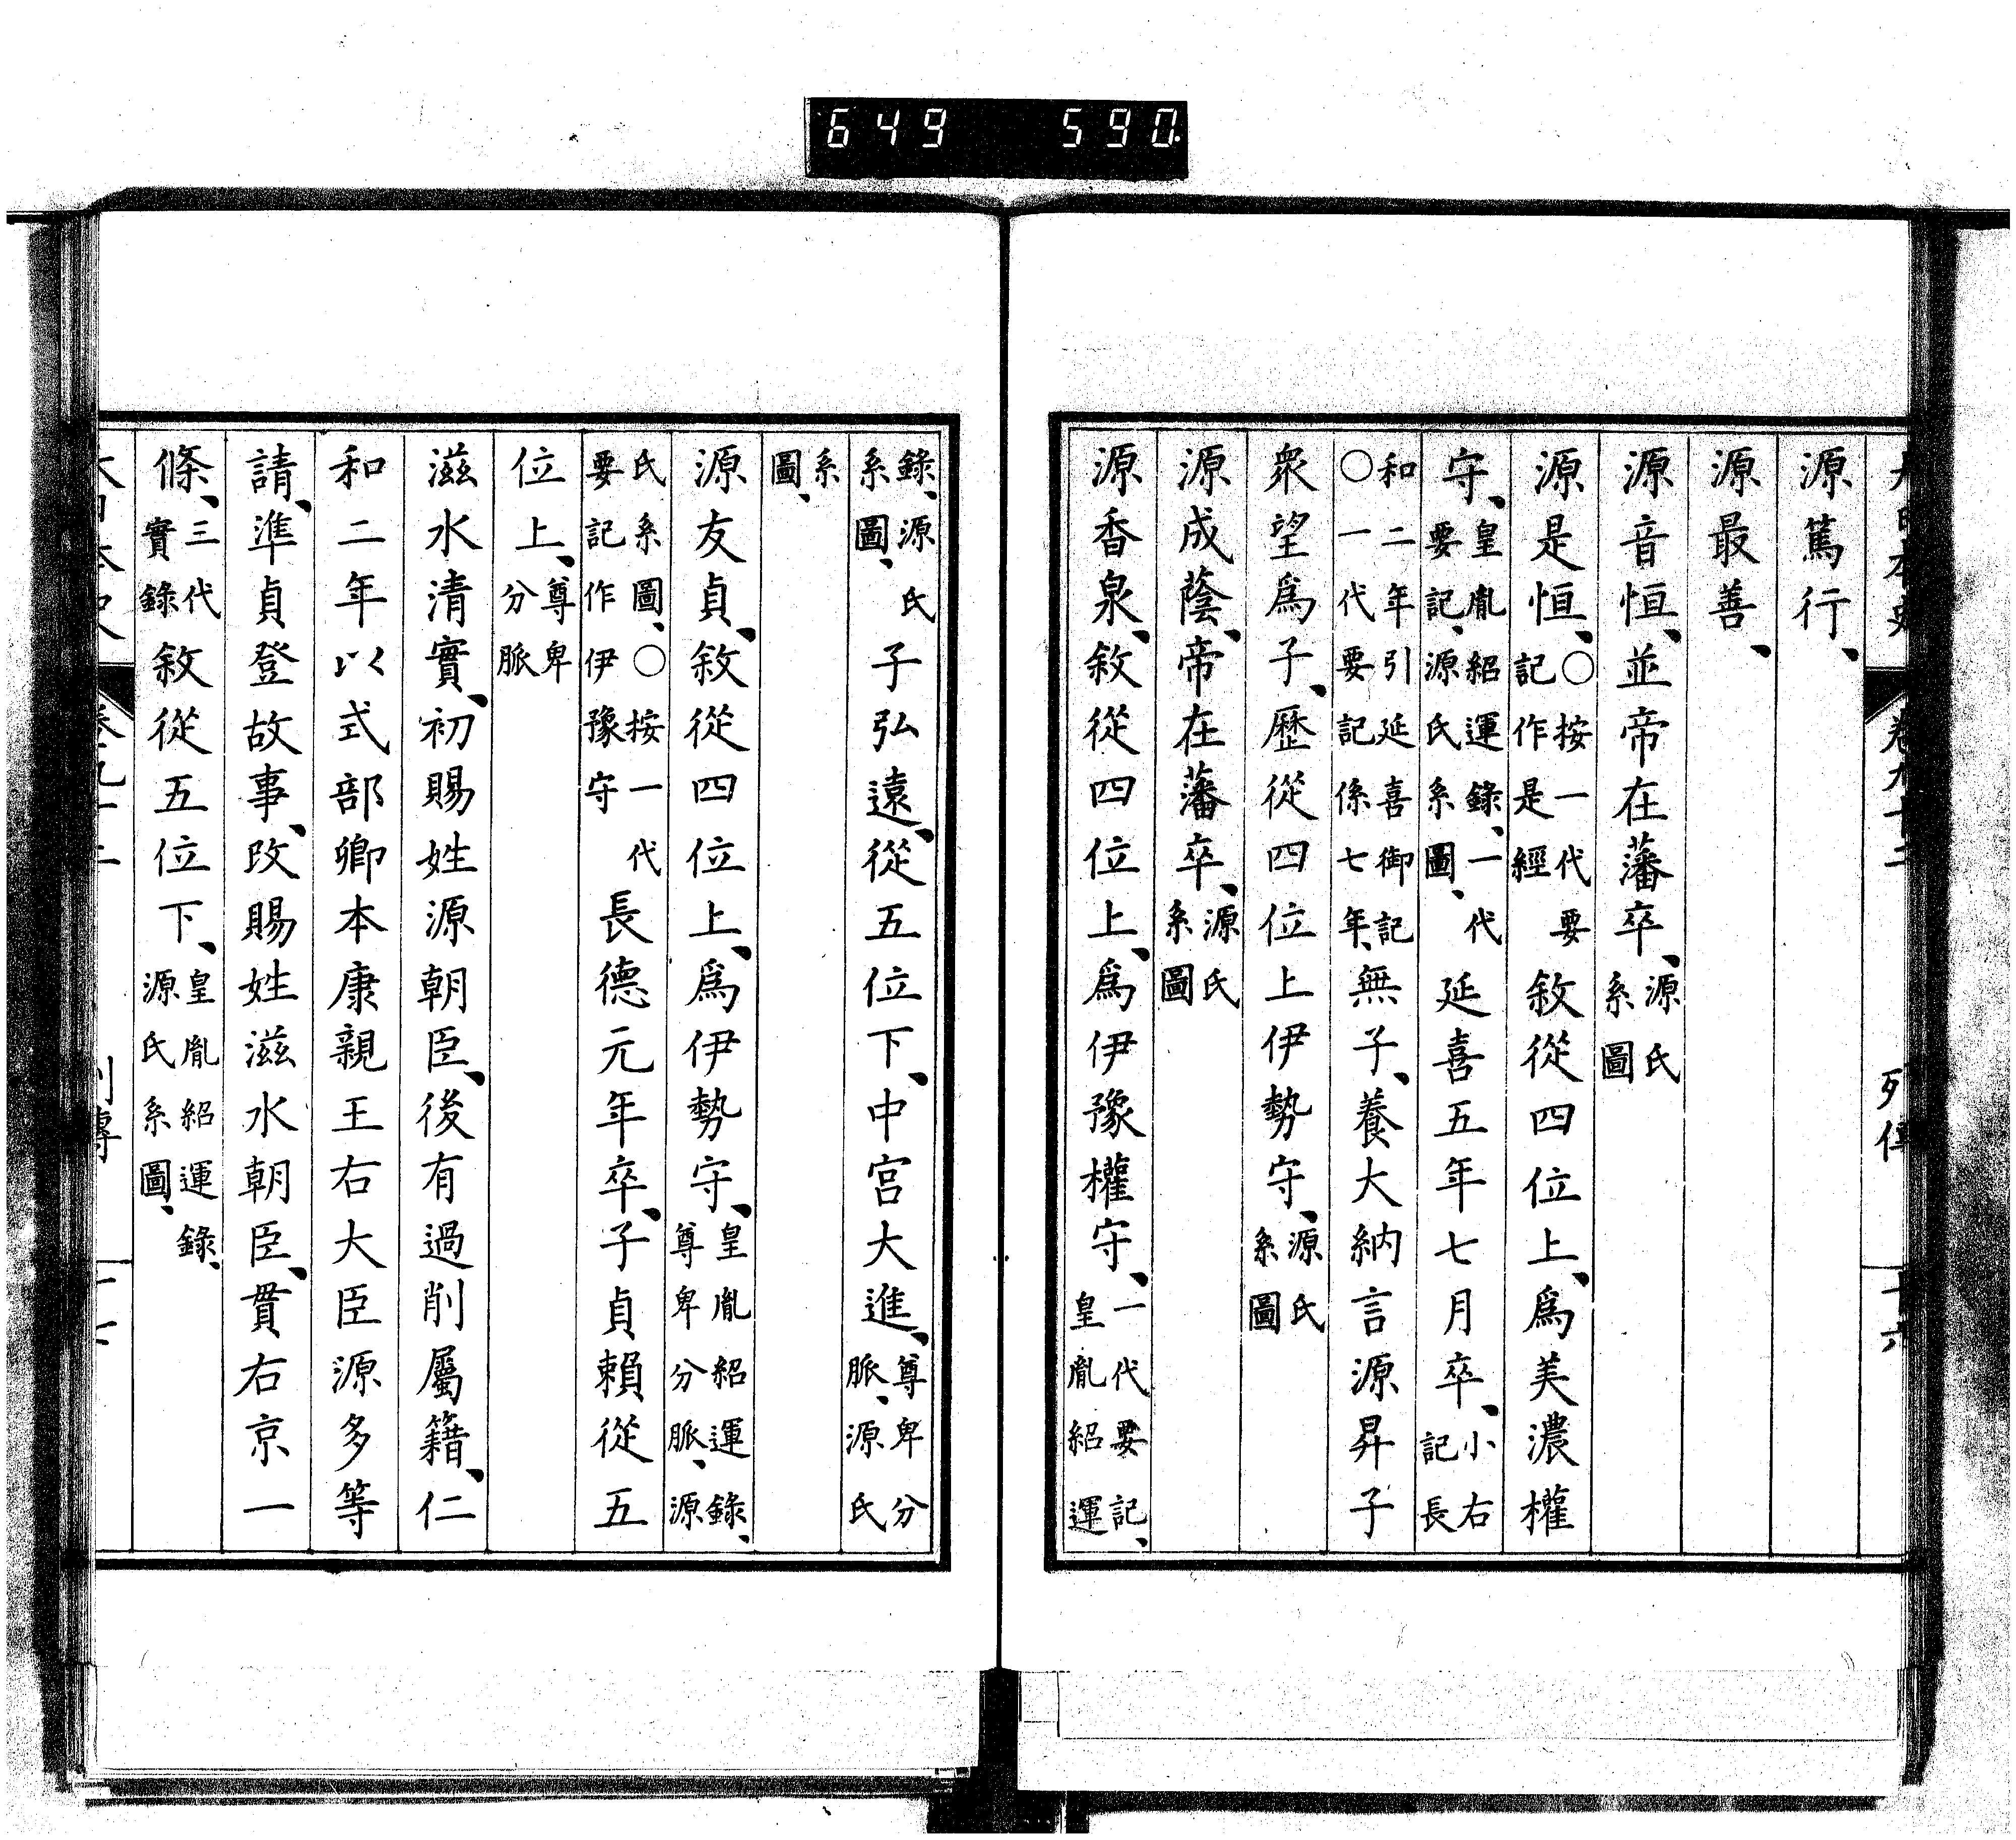 649 590
源篤行、
源最善、
源音恒、並帝在藩卒、源氏系圖
源是恒、○按一代要記作是經敘從四位上、爲美濃權
守、皇胤紹運錄、一代要記、源氏系圖、延喜五年七月卒、小右記長
和二年引延喜御記○一代要記係七年、無子、養大納言源昇子
衆望爲子、歷從四位上伊勢守、源氏系圖
源成蔭、帝在藩卒、源氏系圖
源香泉、敘從四位上、爲伊豫權守、一代要記、皇胤紹運
錄、源氏系圖、子弘遠、從五位下、中宮大進、尊卑分脈、源氏
系圖、
源友貞、敘從四位上、爲伊勢守、皇胤紹運錄、尊卑分脈、源
氏系圖、○按一代要記作伊豫守長德元年卒、子貞賴從五
位上、尊卑分脈
滋水清實、初賜姓源朝臣、後有過削屬籍、仁
和二年以式部卿本康親王右大臣源多等
請、準貞登故事、改賜姓滋水朝臣、貫右京一
條、三代實錄敘從五位下、皇胤紹運錄、源氏系圖、